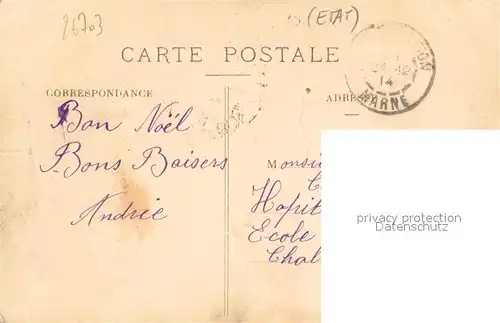 86703
(ETAT)
CARTE POSTALE
CORRESPONDANCE
ADRES
MARNE
14
Bon Noël
Bons Baisers
Andrée
Monsie
Hopit
Ecole
Chal
privacy protection
Datenschutz